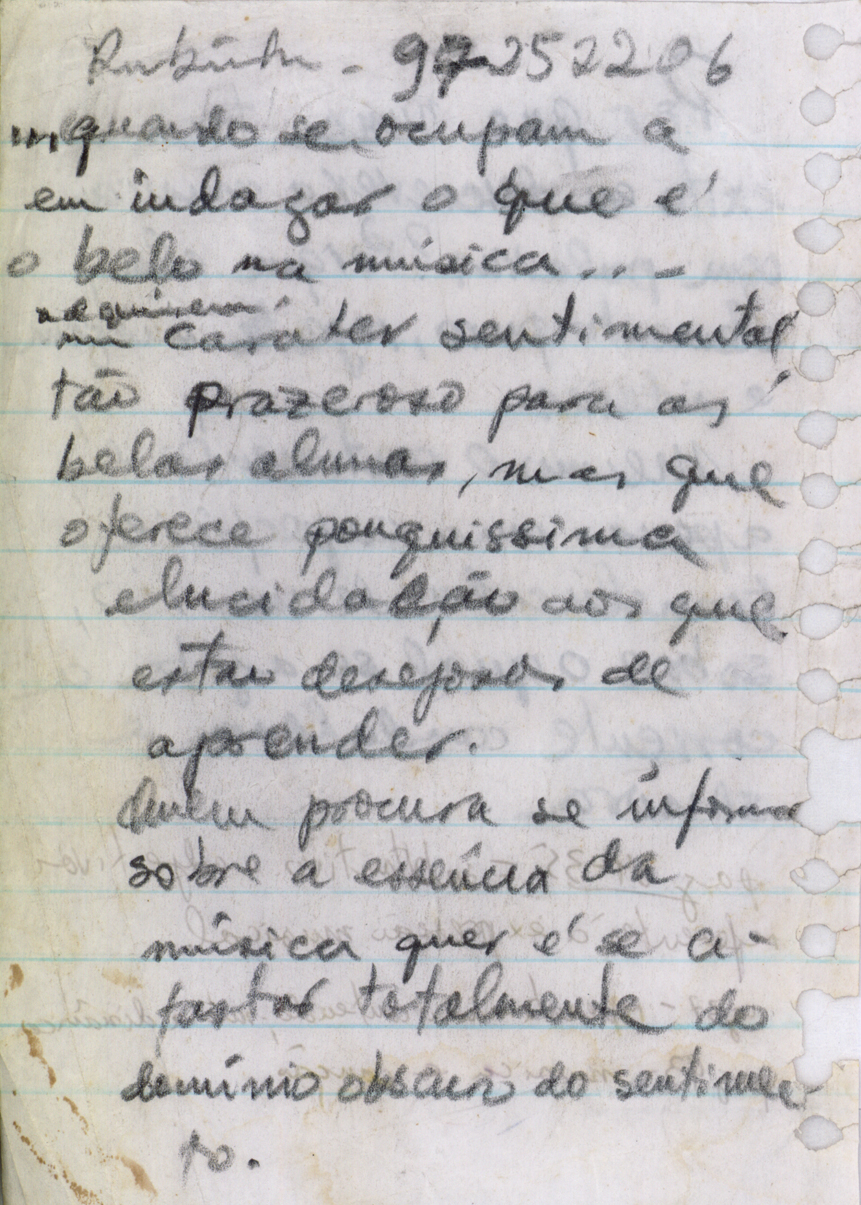 Rubinho - 97252206
... quando se ocupam a
em indagar o que é
o belo na música...-
adquirem
um caráter sentimental
tão prazeroso para as
belas almas, mas que
oferece pouquissima
elucidação aos que
estão desejosos de
aprender.
Quem procura se informar
sobre a essência da
música quer é se a-
fastar totalmente do
domínio obscuro do sentimen-
to.